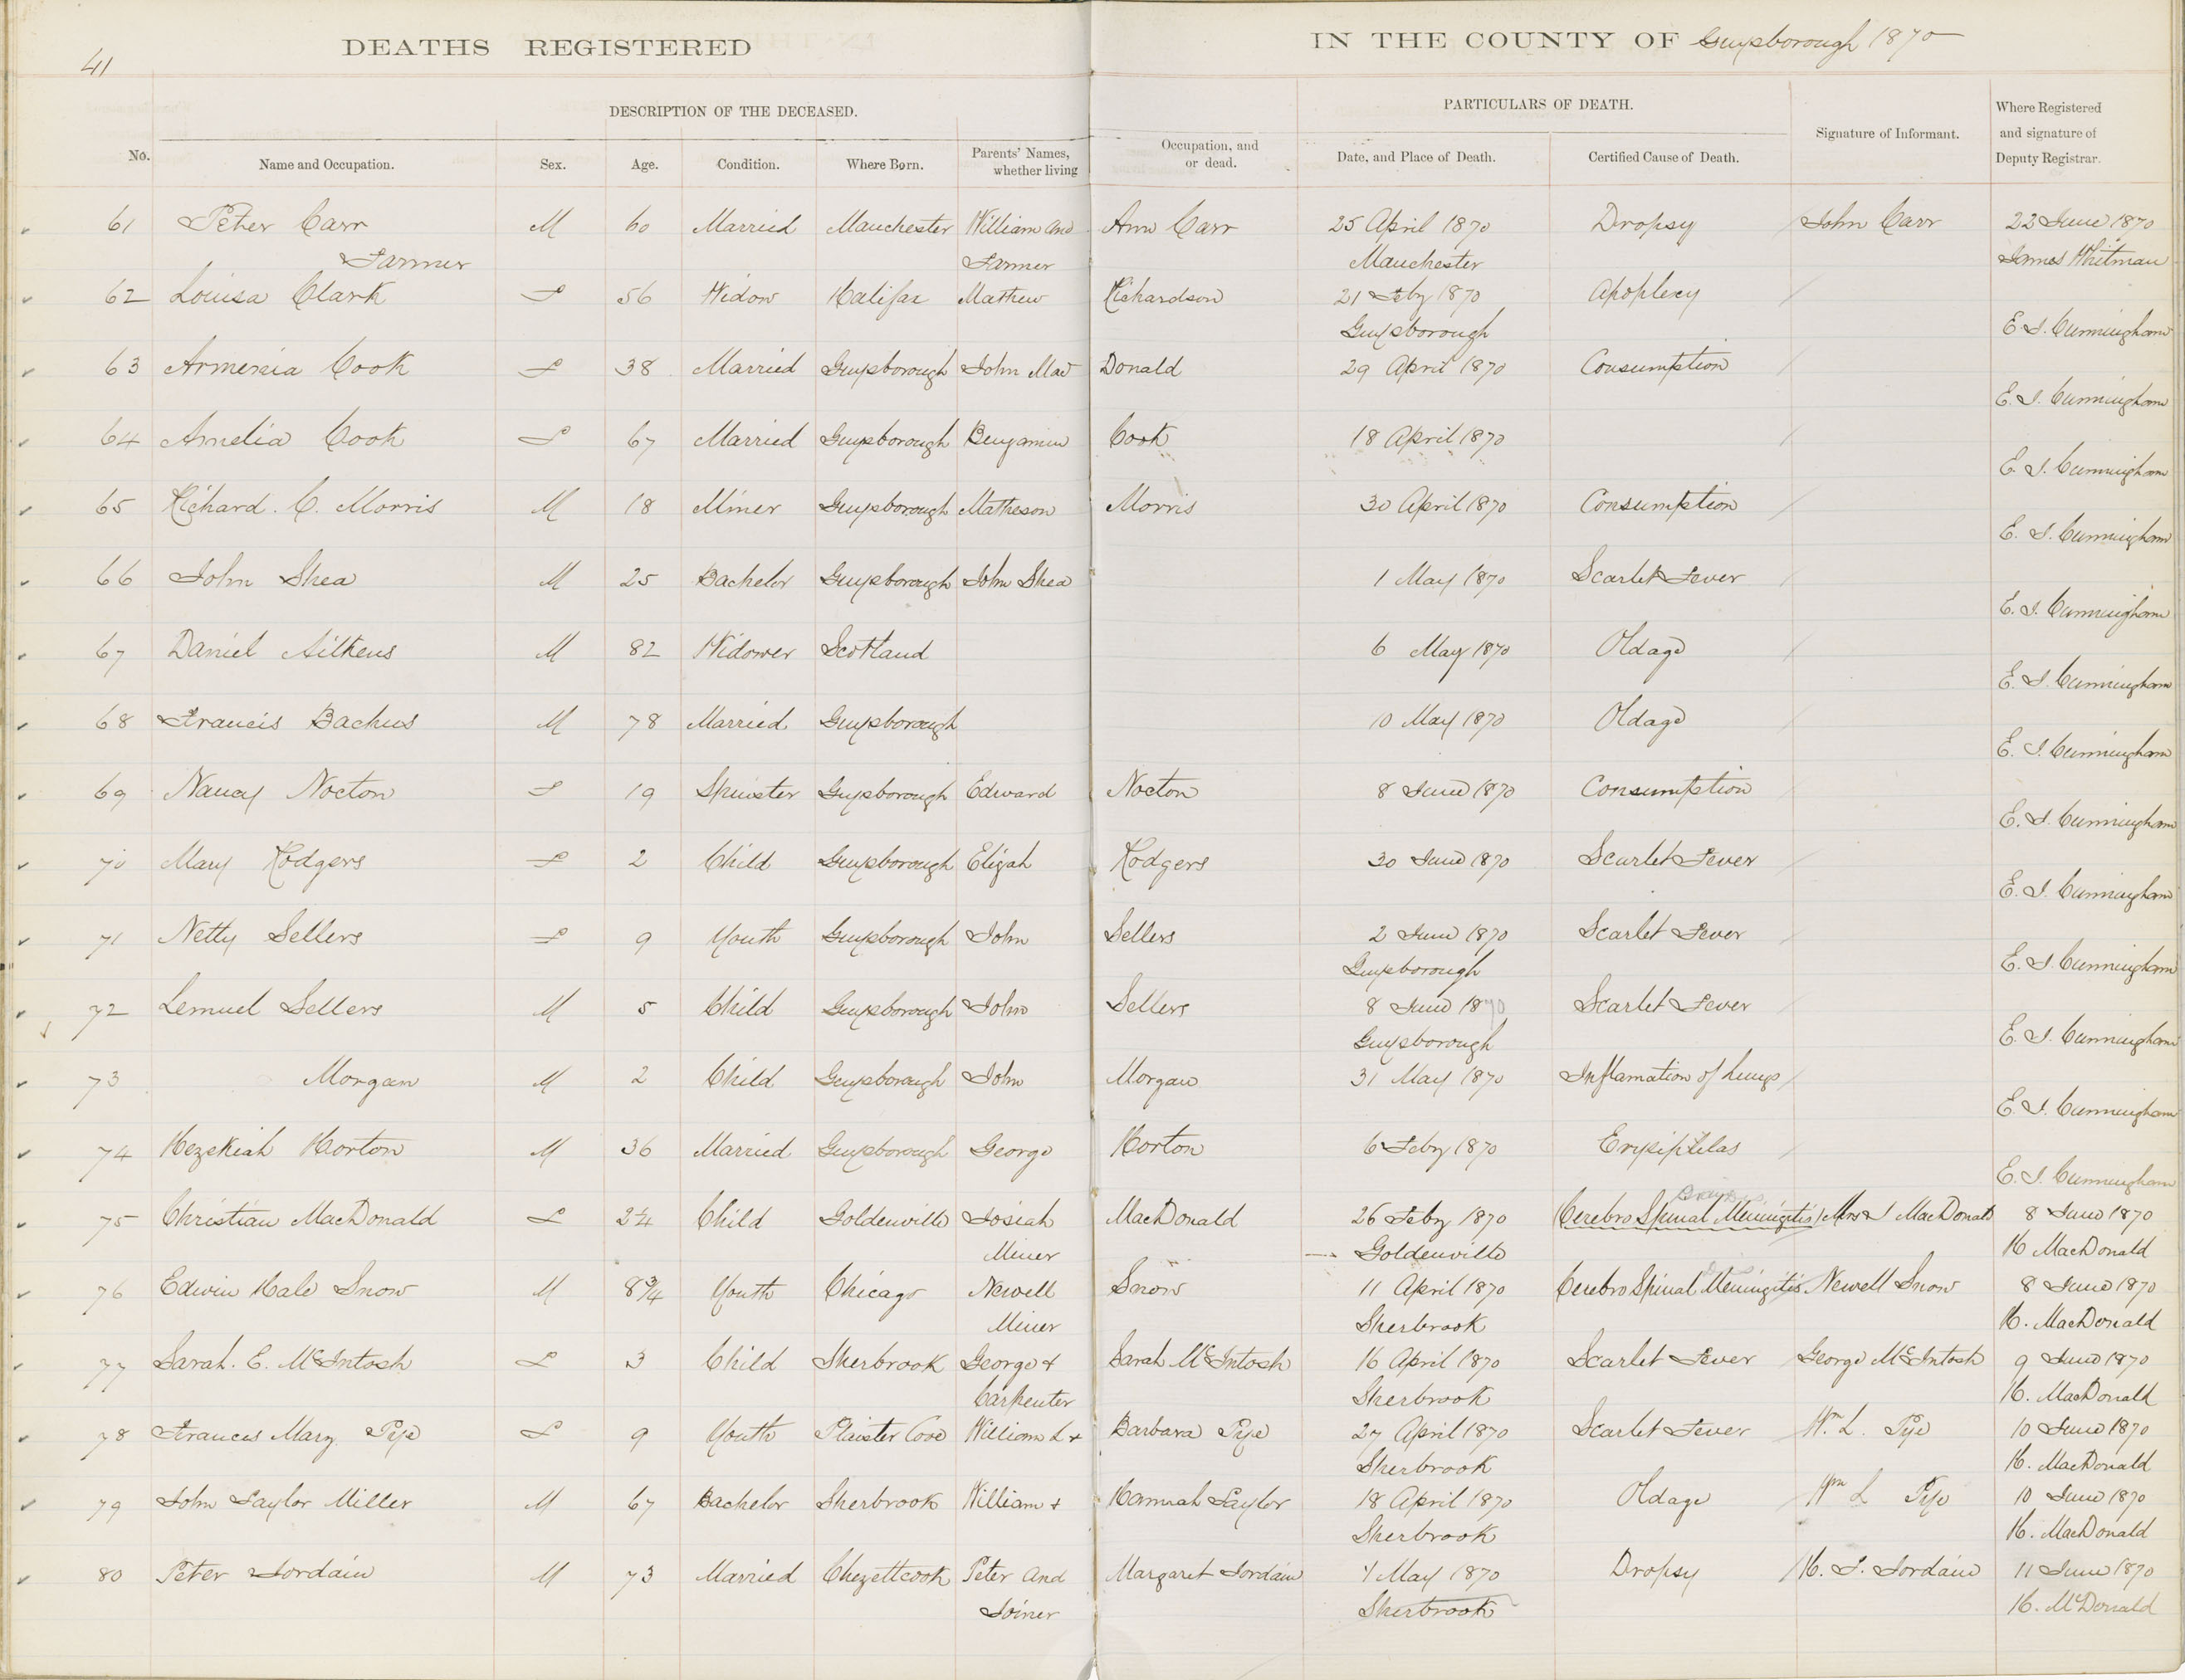 41
DEATHS REGISTERED IN THE COUNTY OF Guysborough 1870
DESCRIPTION OF THE DECEASED. PARTICULARS OF DEATH.
No. Name and Occupation. Sex. Age. Condition. Where Born. Parents' Names, whether living Occupation, and or dead. Date, and Place of Death. Certified Cause of Death. Signature of Informant. Where Registered and signature of Deputy Registrar.
61 Peter Carr M 60 Married Manchester William and Ann Carr 25 April 1870 Dropsy John Carr 22 June 1870
Farmer Farmer Manchester James Whitman
62 Louisa Clark F 56 Widow Halifax Mathew Richardson 21 Feby 1870 Apoplexy
Guysborough E. I. Cunningham
63 Armenia Cook F 38 Married Guysborough John Mac Donald 29 April 1870 Consumption
E. I. Cunningham
64 Amelia Cook F 67 Married Guysborough Benjamin Cook 18 April 1870
E. I. Cunningham
65 Richard. C. Morris M 18 Miner Guysborough Matheson Morris 30 April 1870 Consumption
E. I. Cunningham
66 John Shea M 25 Bachelor Guysborough John Shea 1 May 1870 Scarlet Fever
E. I. Cunningham
67 Daniel Aitkens M 82 Widower Scotland 6 May 1870 Oldage
E. I. Cunningham
68 Francis Backus M 78 Married Guysborough 10 May 1870 Oldage
E. I. Cunningham
69 Nancy Nocton F 19 Spinster Guysborough Edward Nocton 8 June 1870 Consumption
E. I. Cunningham
70 Mary Rodgers F 2 Child Guysborough Elijah Rodgers 30 June 1870 Scarlet Fever
E. I. Cunningham
71 Netty Sellers F 9 Youth Guysborough John Sellers 2 June 1870 Scarlet Fever
Guysborough E. I. Cunningham
72 Lemuel Sellers M 5 Child Guysborough John Sellers 8 June 1870 Scarlet Fever
Guysborough E. I. Cunningham
73 Morgan M 2 Child Guysborough John Morgan 31 May 1870 Inflamation of Lungs
E. I. Cunningham
74 Hezekiah Horton M 36 Married Guysborough George Horton 6 Feby 1870 Erysipilelas
E. I. Cunningham
75 Christian MacDonald F 2¼ Child Goldenville Josiah MacDonald 26 Feby 1870 Cerebro Spinal Meningitis Mrs J MacDonald 8 June 1870
Miner Goldenville H MacDonald
76 Edwin Hale Snow M 8¾ Youth Chicago Newell Snow 11 April 1870 Cerebro Spinal Meningitis Newell Snow 8 June 1870
Miner Sherbrook H. MacDonald
77 Sarah. E. McIntosh F 3 Child Sherbrook George + Sarah McIntosh 16 April 1870 Scarlet Fever George McIntosh 9 June 1870
Carpenter Sherbrook H. MacDonald
78 Frances Mary Pye F 9 Youth Plaister Cove William L + Barbara Pye 27 April 1870 Scarlet Fever Wm. L. Pye 10 June 1870
Sherbrook H. MacDonald
79 John Taylor Miller M 67 Bachelor Sherbrook William + Hannah Taylor 18 April 1870 Oldage Wm L Pye 10 June 1870
Sherbrook H. MacDonald
80 Peter Jordain M 73 Married Chezettcook Peter and Margaret Jordain 4 May 1870 Dropsy H. I. Jordain 11 June 1870
Joiner Sherbrook H. McDonald